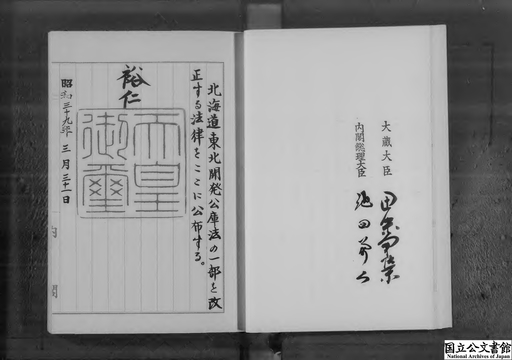 北海道東北開発公庫法の一部を改
正する法律をここに公布する。
裕仁
天皇
御璽
昭和三十九年 三月三十一日
内閣
大蔵大臣 田中角榮
内閣総理大臣 池田勇人
国立公文書館
National Archives of Japan